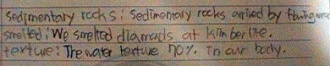 Sedimentary rocks: Sedimentary rocks arrived by flowing
smelted: We smelted diamonds at Kimberlite.
texture: The water texture 70%. In our body.